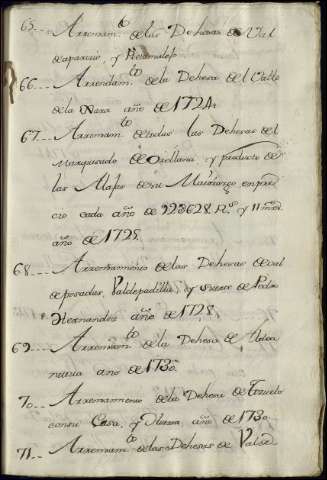 65... Arrendam.to de las Dehesas de Val
de aparicio, y
66... Arrendam.to de la Dehesa del Valle
de la Nava año de 1724.
67... Arrendam.to de todas las Dehesas del
Marquesado de Orellana, y producto de
las Alajas de su Maiorazgo en pre
cio cada año de 223628 R.s y 11 mrs
año de 1725.
68... Arrendamiento de las Dehesas de Val
de posadas, Valdepadilla, y suerte de Pedro
Hernandez año de 1728.
69... Arrendam.to de la Dehesa de
año de 1730.
70... Arrendamiento de la Dehesa de
con su Casa, y Huerta, año de 1730.
71... Arrendam.to de las Dehesas de Valde